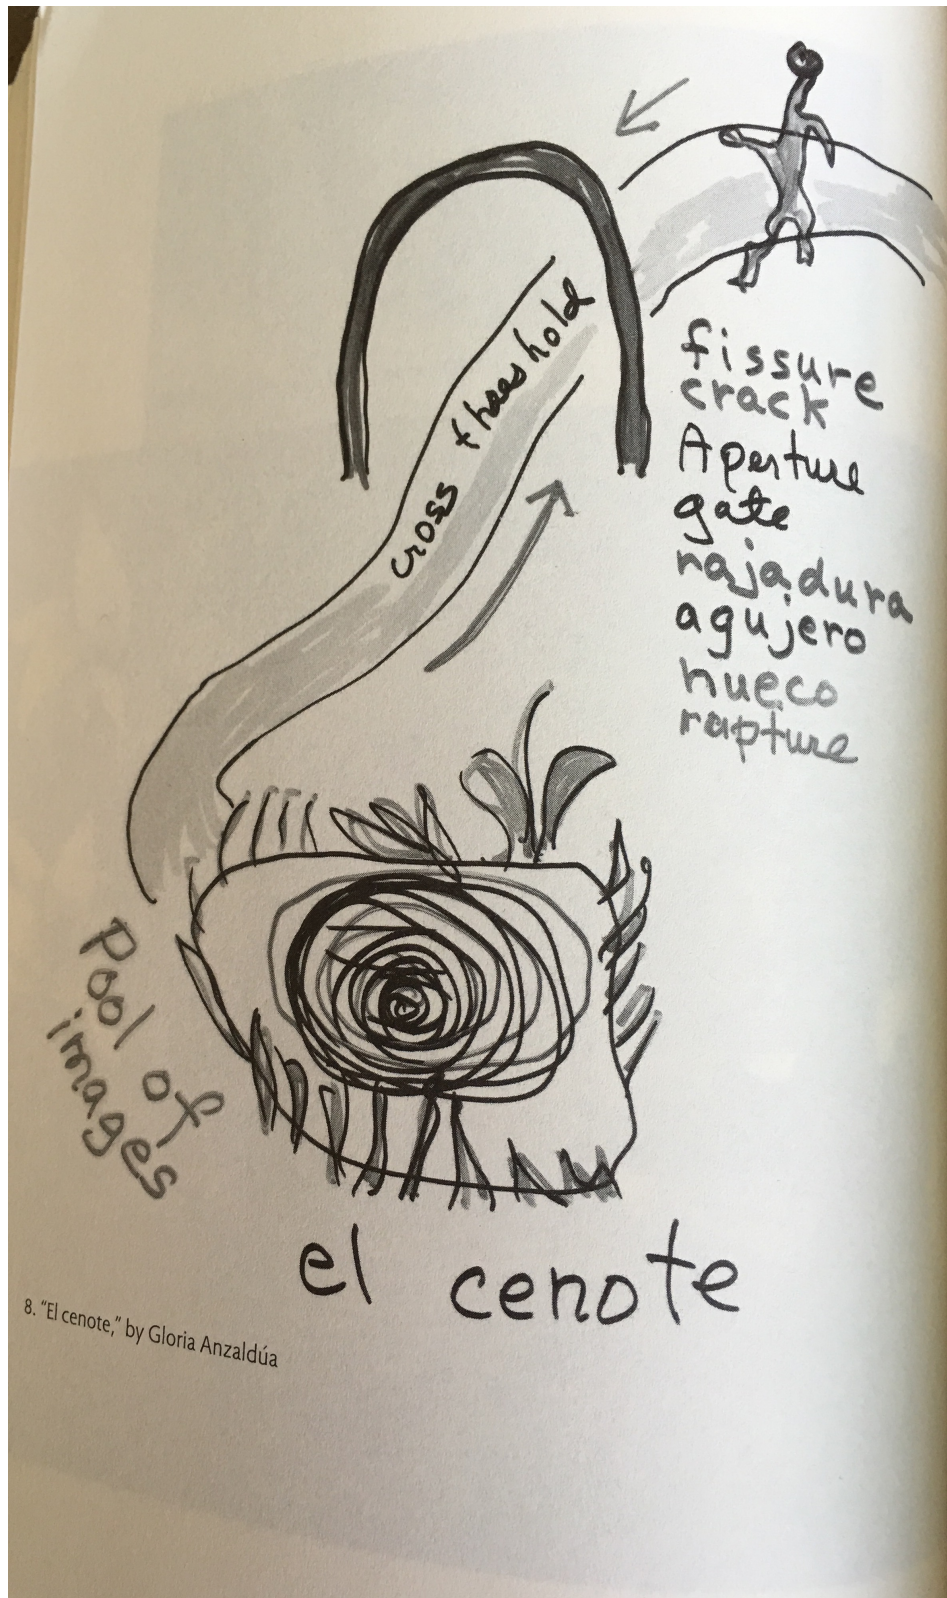 cross threshold
fissure
crack
Aperture
gate
rajadura
agujero
hueco
rapture
Pool of
images
el cenote
8. “El cenote,” by Gloria Anzaldúa